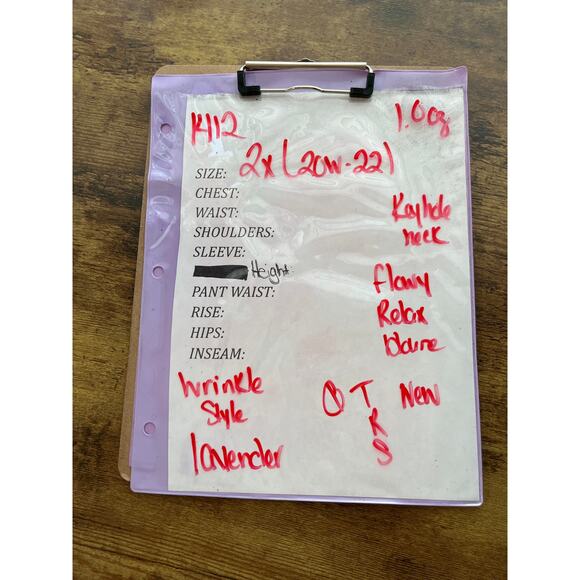 K112
1.0oz
SIZE: 2x (20W-22)
CHEST:
WAIST:
SHOULDERS:
SLEEVE:
Keyhole
neck
Height
PANT WAIST:
RISE:
HIPS:
INSEAM:
flowy
Relax
Wrinkle
Style
lavender
T
R
S
New